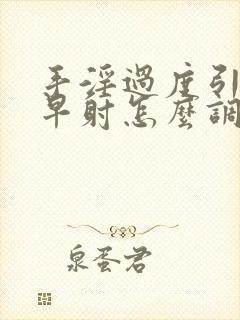 手淫過度引
早射怎麼調
泉蛋君